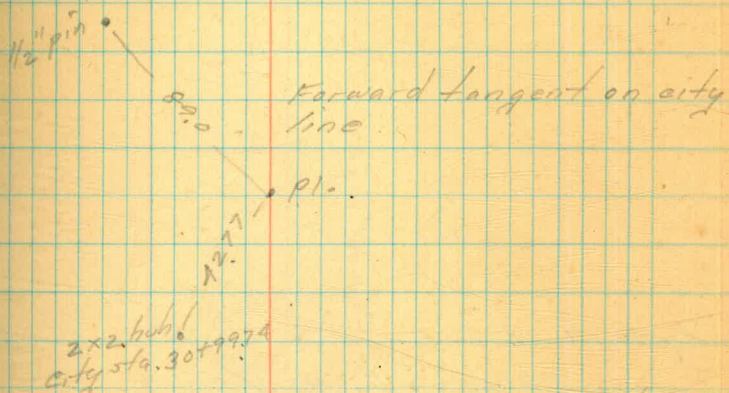 1/2" pin
88.0
Forward tangent on city
line
P.I.
2x2 hub
city sta. 30+99.74